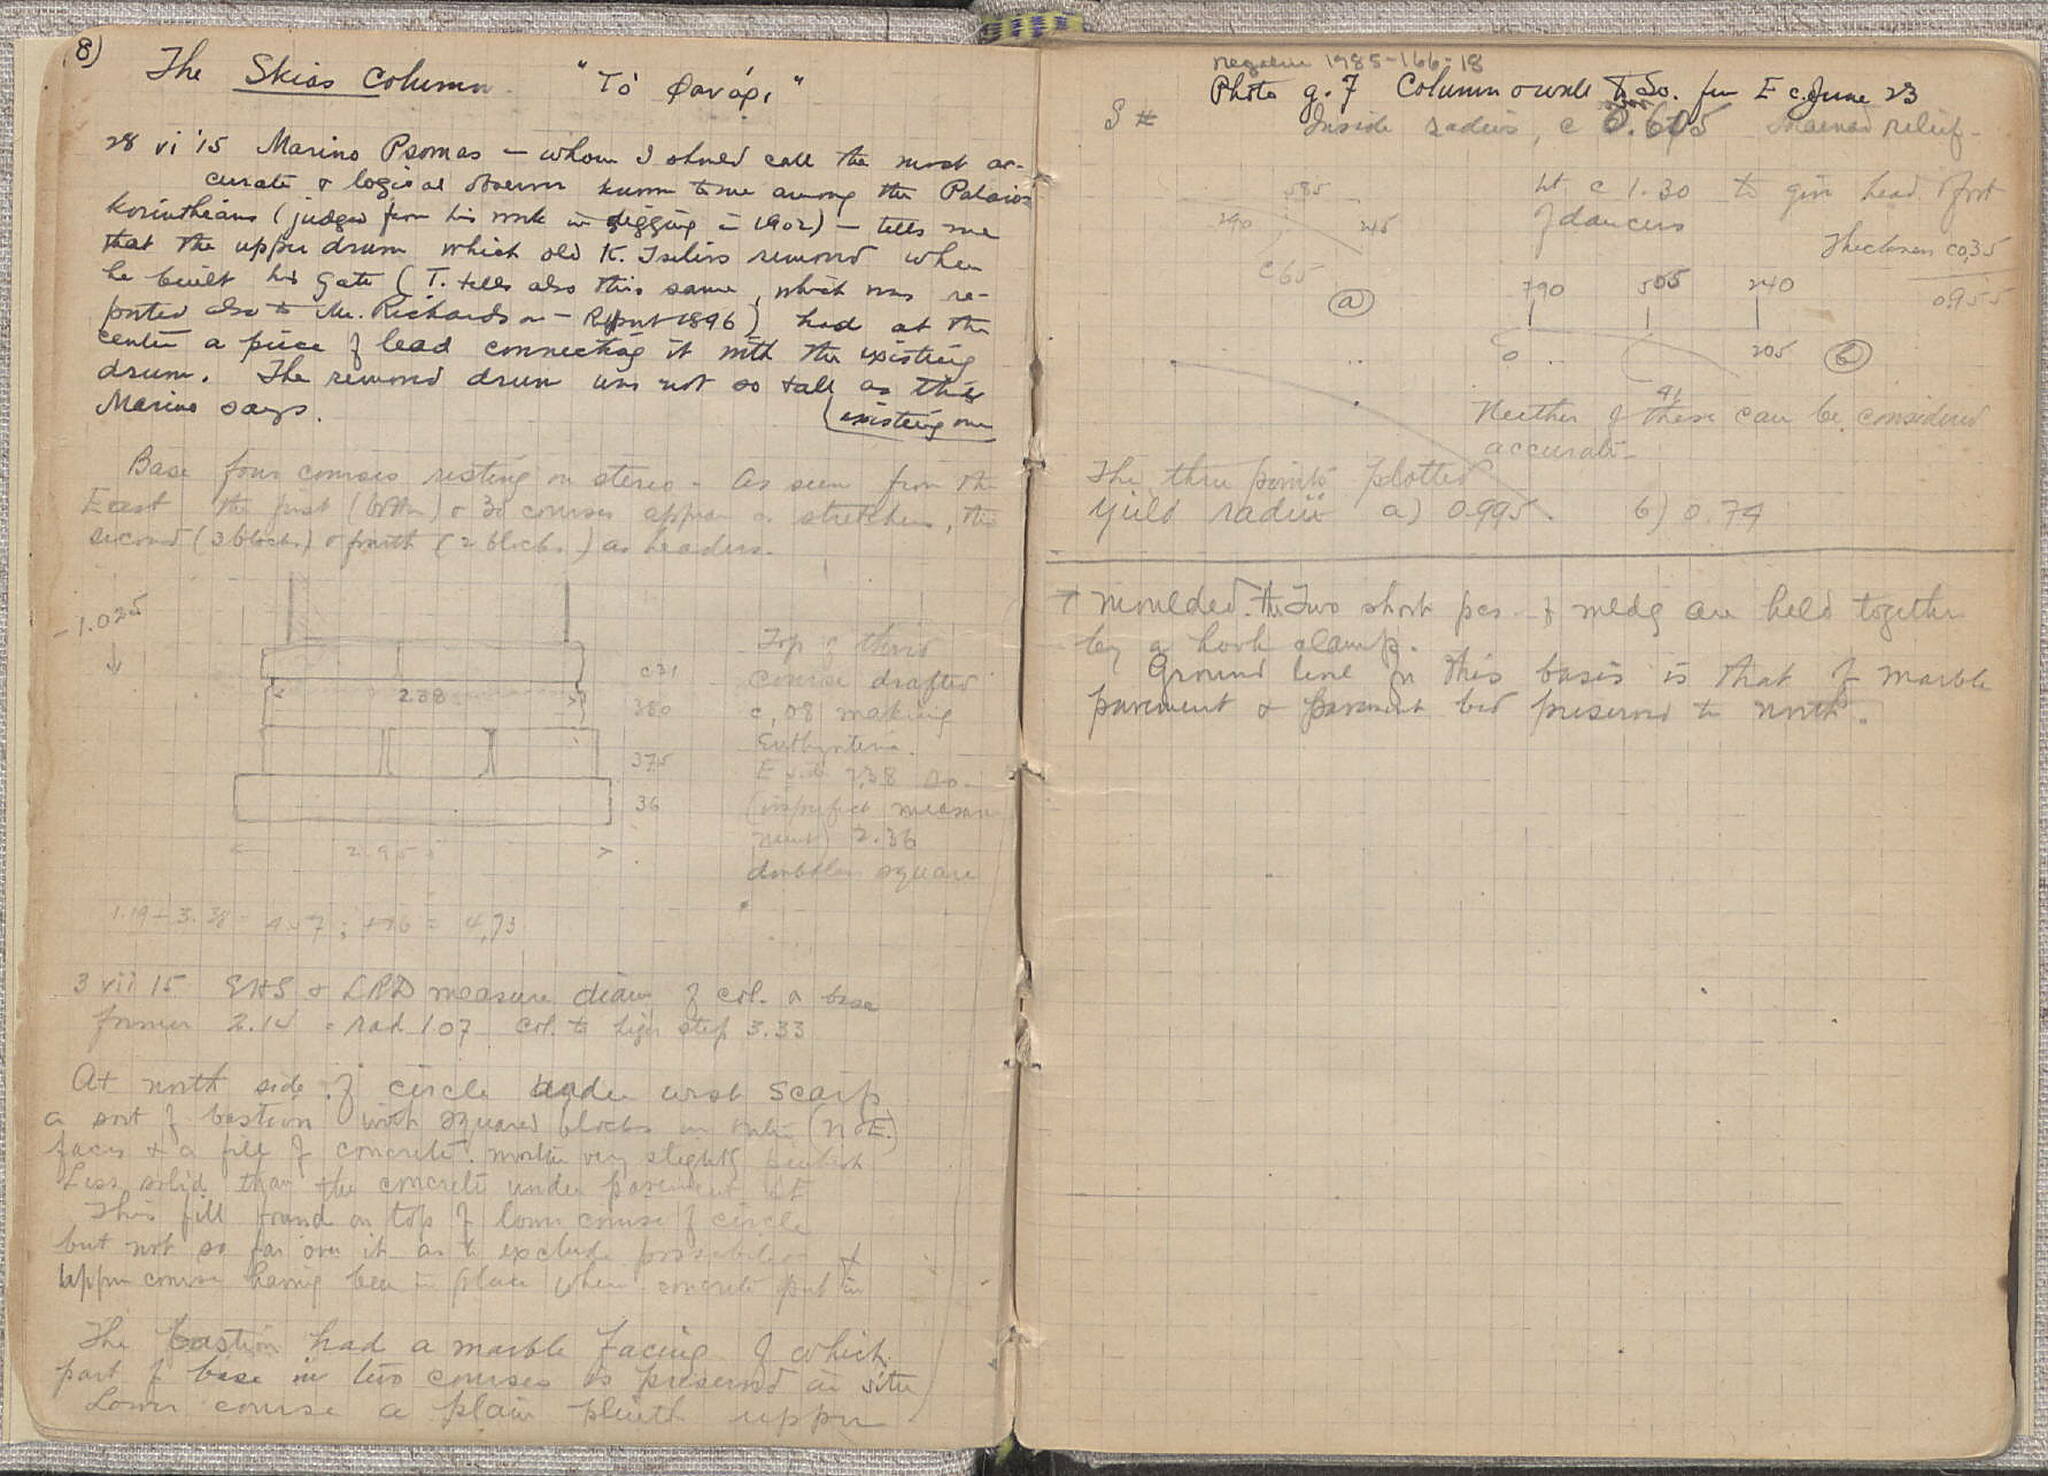 8)
The Skias Column "Τὸ Φανάρι"
28 vi '15 Marino Psomas – whom I should call the most ac-
curate & logical observer known to me among the Palaio
Korintheans (judged from his work in digging in 1902) – tells me
that the upper drum which old K. Tselios removed when
he built his gate (T. tells also this same, which was re-
ported also to Mr. Richardson – Report 1896) had at the
center a piece of lead connecting it with the existing
drum. The removed drum was not so tall as this
Marino says. (existing one
Base four courses resting on stereo – As seen from the
East the first (bottom) & 3d courses appear as stretchers, the
second (3 blocks) & fourth (2 blocks) as headers.
– 1.025
2.38
c 31
380
375
36
2.95
Top of third
course drafted
c .08 making
Euthynteria.
E s.d. 2.38 So.
(imperfect measure
ment) 2.36
doubtless square
1.19 + 3.38 = 4.57 ; + 16 = 4.73
3 vii 15 EHS & LRD measure diam of col. & base
former 2.14 = rad 1 07 col. to higher step 3.33
At north side of circle under west scarp
a sort of bastion with squared blocks in outer (N & E.)
faces & a fill of concrete. mortar very slightly
Less solid than the concrete under pavement at
This fill found on top of lower course of circle
but not so far over it as to exclude possibility of
upper course having been in place when concrete put in
The bastion had a marble facing of which
part of base in two courses is preserved in situ
Lower course a plain plinth upper
negative 1985-166-18
Photo g. 7 Column & walls to So. from E c. June 23
S #
Inside radius, c 0.605 Maenad relief –
585
290
245
c 65
(a)
Ht c 1.30 to give head & foot
of dancers
Thickness c 0,35
0.955
790 505 240
0
205
(b)
91
Neither of these can be considered
accurate –
The three points plotted
yield radii a) 0.995. b) 0.74
↑ moulded. The Two short pcs. of mldg are held together
by a hook clamp.
Ground line for this basis is that of marble
pavement & pavement bed preserved to north.